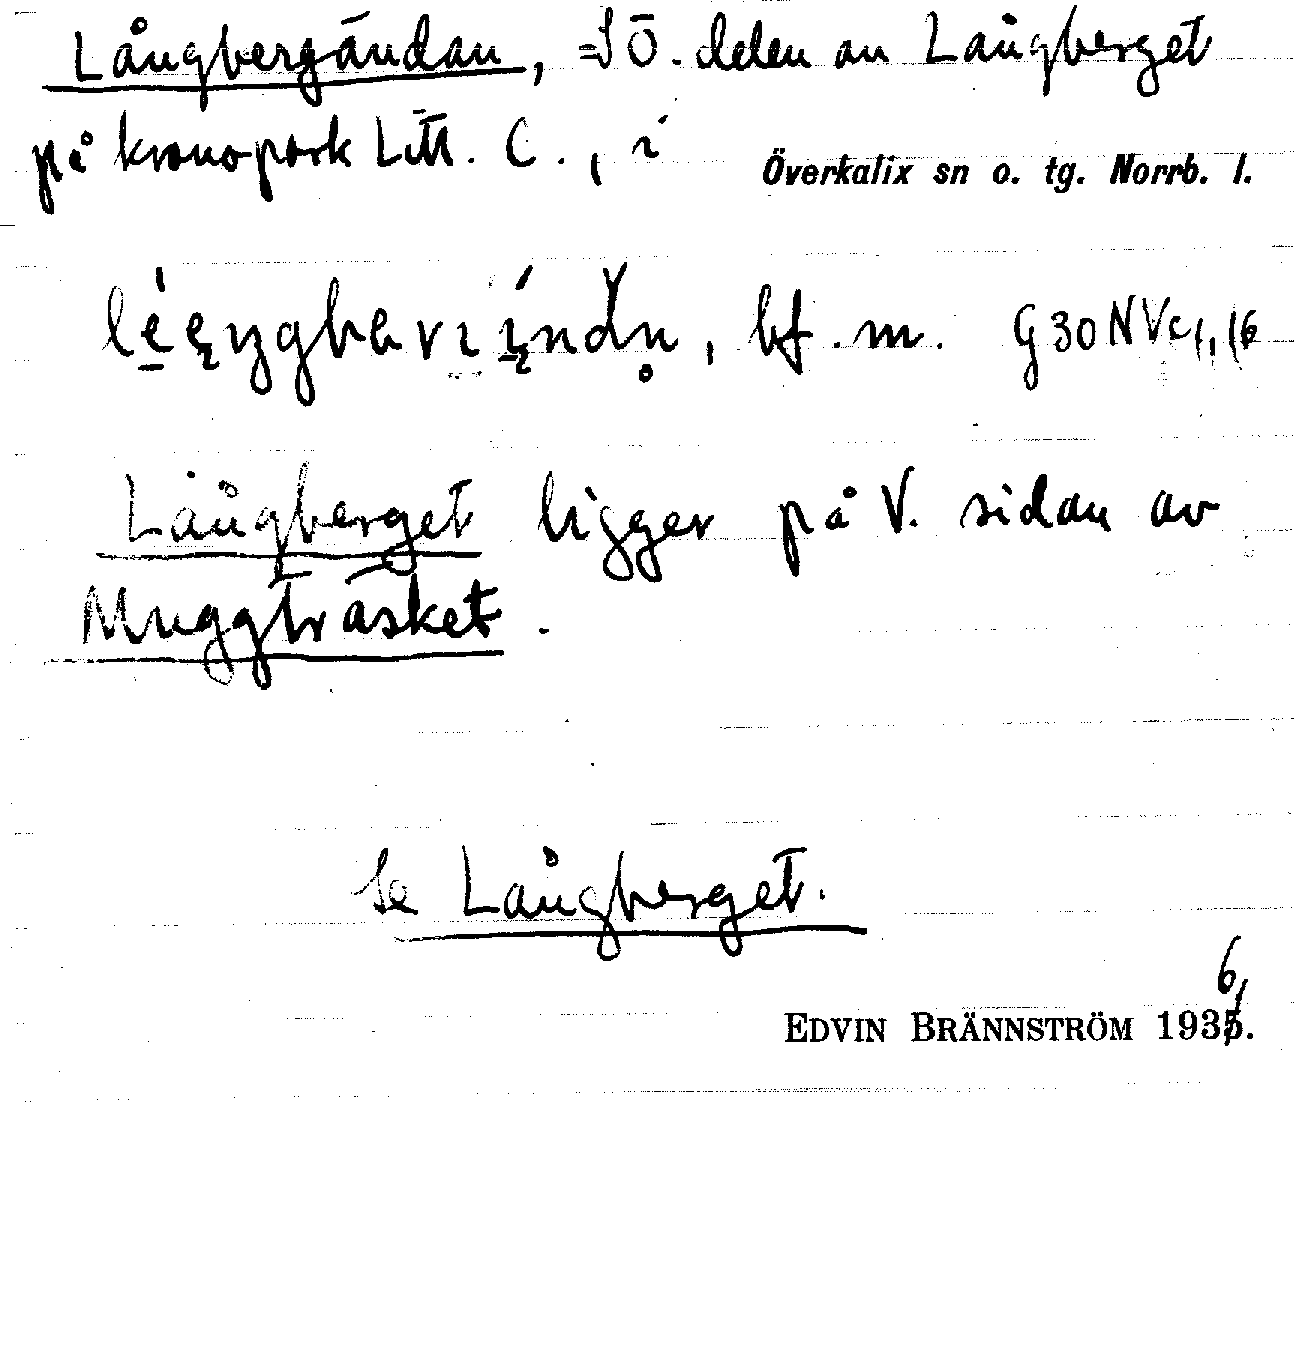 Långbergändan, =SÖ. delen av Långberget
på kronopark Litt. C., i Överkalix sn o. tg. Norrb. l.
bf. m. G30NVc1,16
Långberget ligger på V. sidan av
Muggträsket.
Se Långberget.
6
EDVIN BRÄNNSTRÖM 1935.